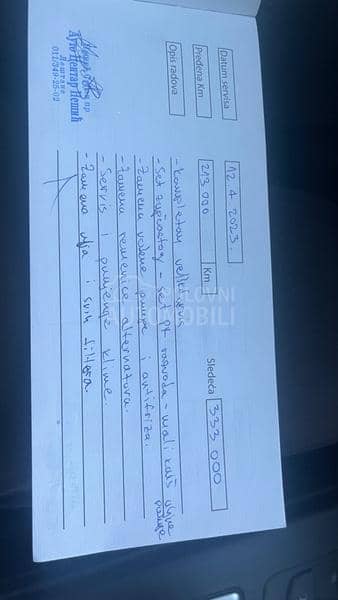 Datum servisa 12.4.2023.
Pređena Km 213 000 Km Sledeća 333.000
Opis radova
- Kompletan veliki servis
- Set zupčastog - set PK razvoda - mali kaiš uljne pumpe
- Zamena vodene pumpe i antifriza.
- Zamena remenice alternatora.
- Servis i punjenje klime.
- Zamena ulja i svih filtera.
Ауто Центар Пешић
011/349-25-02
POLOVNI
AUTOMOBILI